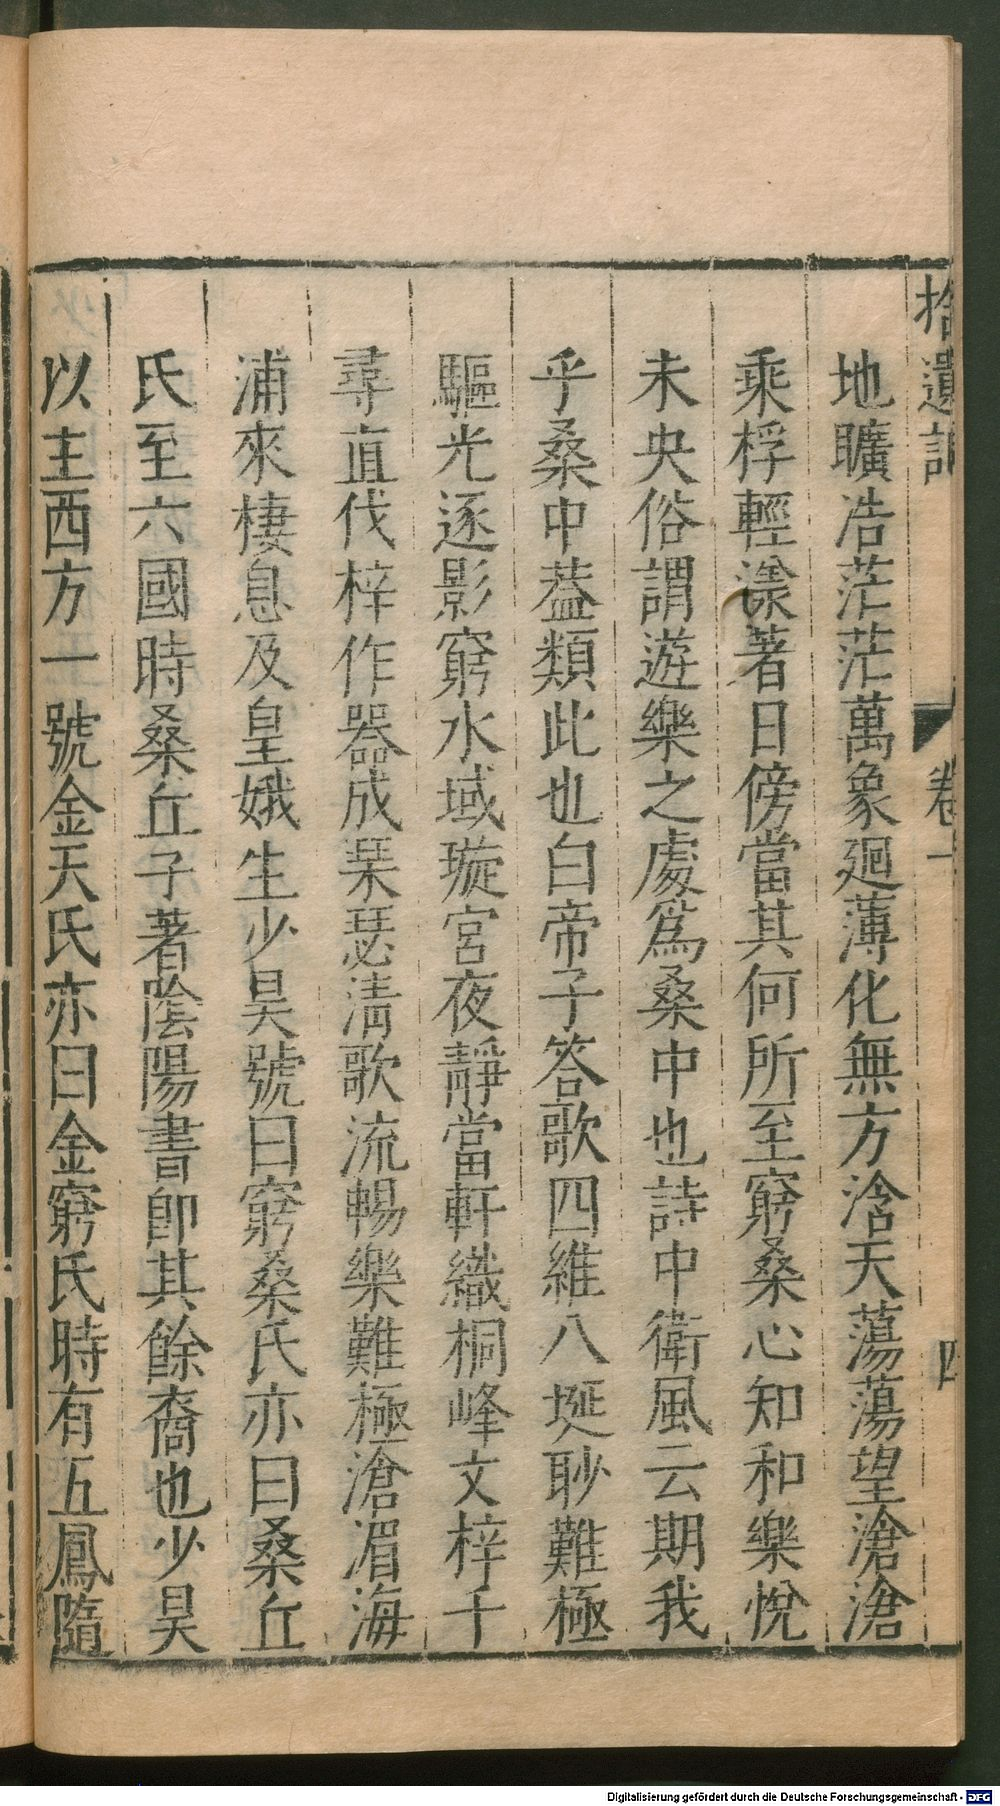 拾遺記 卷一 四
地曠浩茫茫萬象廻薄化無方浛天蕩蕩望滄滄
乘桴輕漾著日傍當其何所至窮桑心知和樂悅
未央俗謂遊樂之處爲桑中也詩中衛風云期我
乎桑中葢類此也白帝子答歌四維八埏眇難極
驅光逐影窮水域璇宮夜靜當軒織桐峰文梓千
尋直伐梓作器成琹瑟淸歌流暢樂難極滄湄海
浦來棲息及皇娥生少昊號曰窮桑氏亦曰桑丘
氏至六國時桑丘子著陰陽書卽其餘裔也少昊
以主西方一號金天氏亦曰金窮氏時有五鳳隨
Digitalisierung gefördert durch die Deutsche Forschungsgemeinschaft - DFG